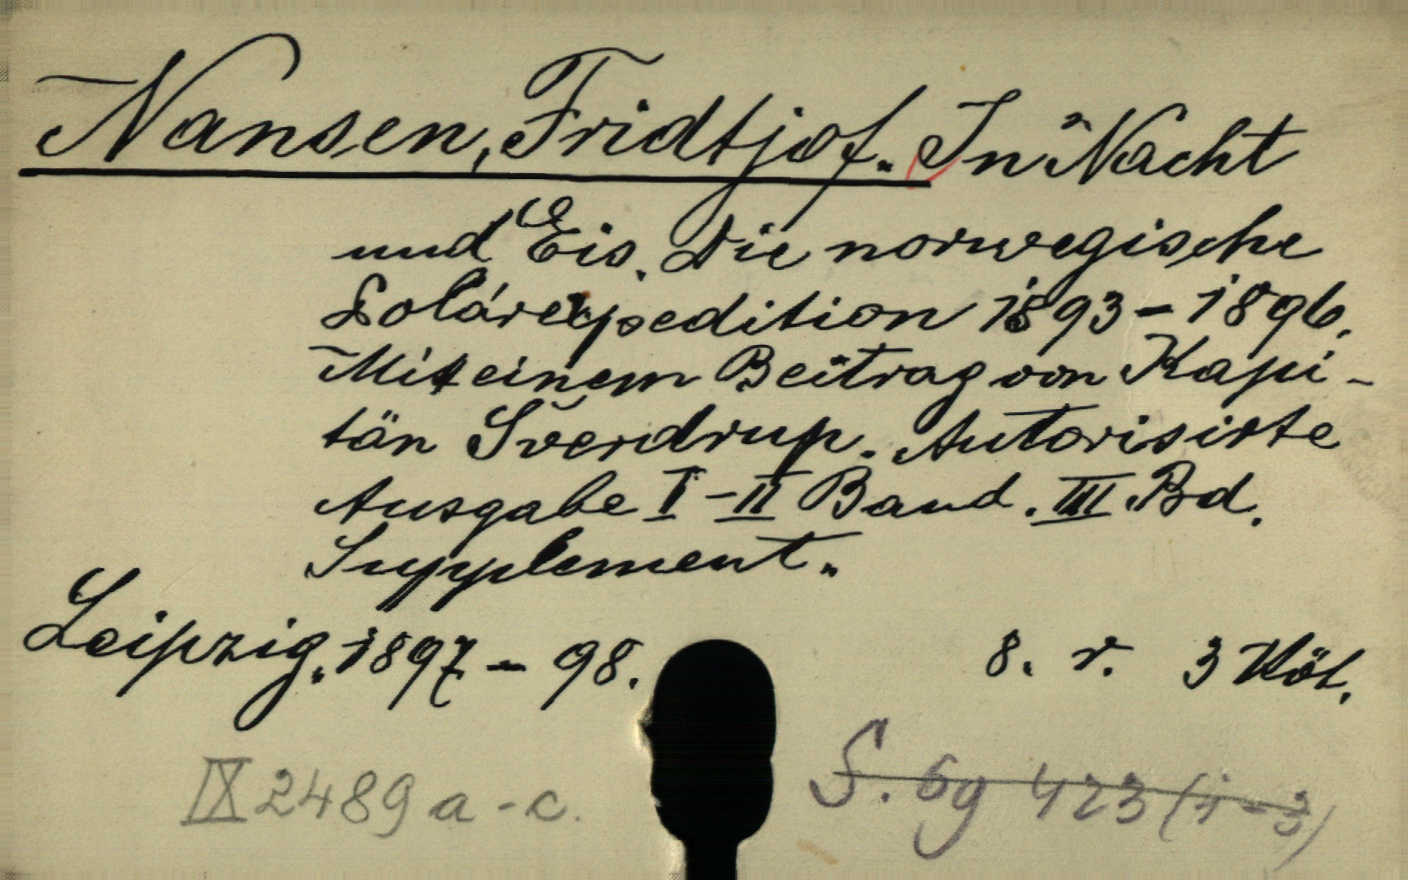 Nansen, Fridtjof. In Nacht
und Eis. Die norwegische
Polárexpedition 1893-1896.
Mit einem Beitrag von Kapi-
tän Sverdrup. Autorisirte
Ausgabe I-II Band. III Bd.
Supplement.
Leipzig. 1897-98. 8. r. 3 Köt.
IX 2489 a-c. S. 6g 423 (1-3)